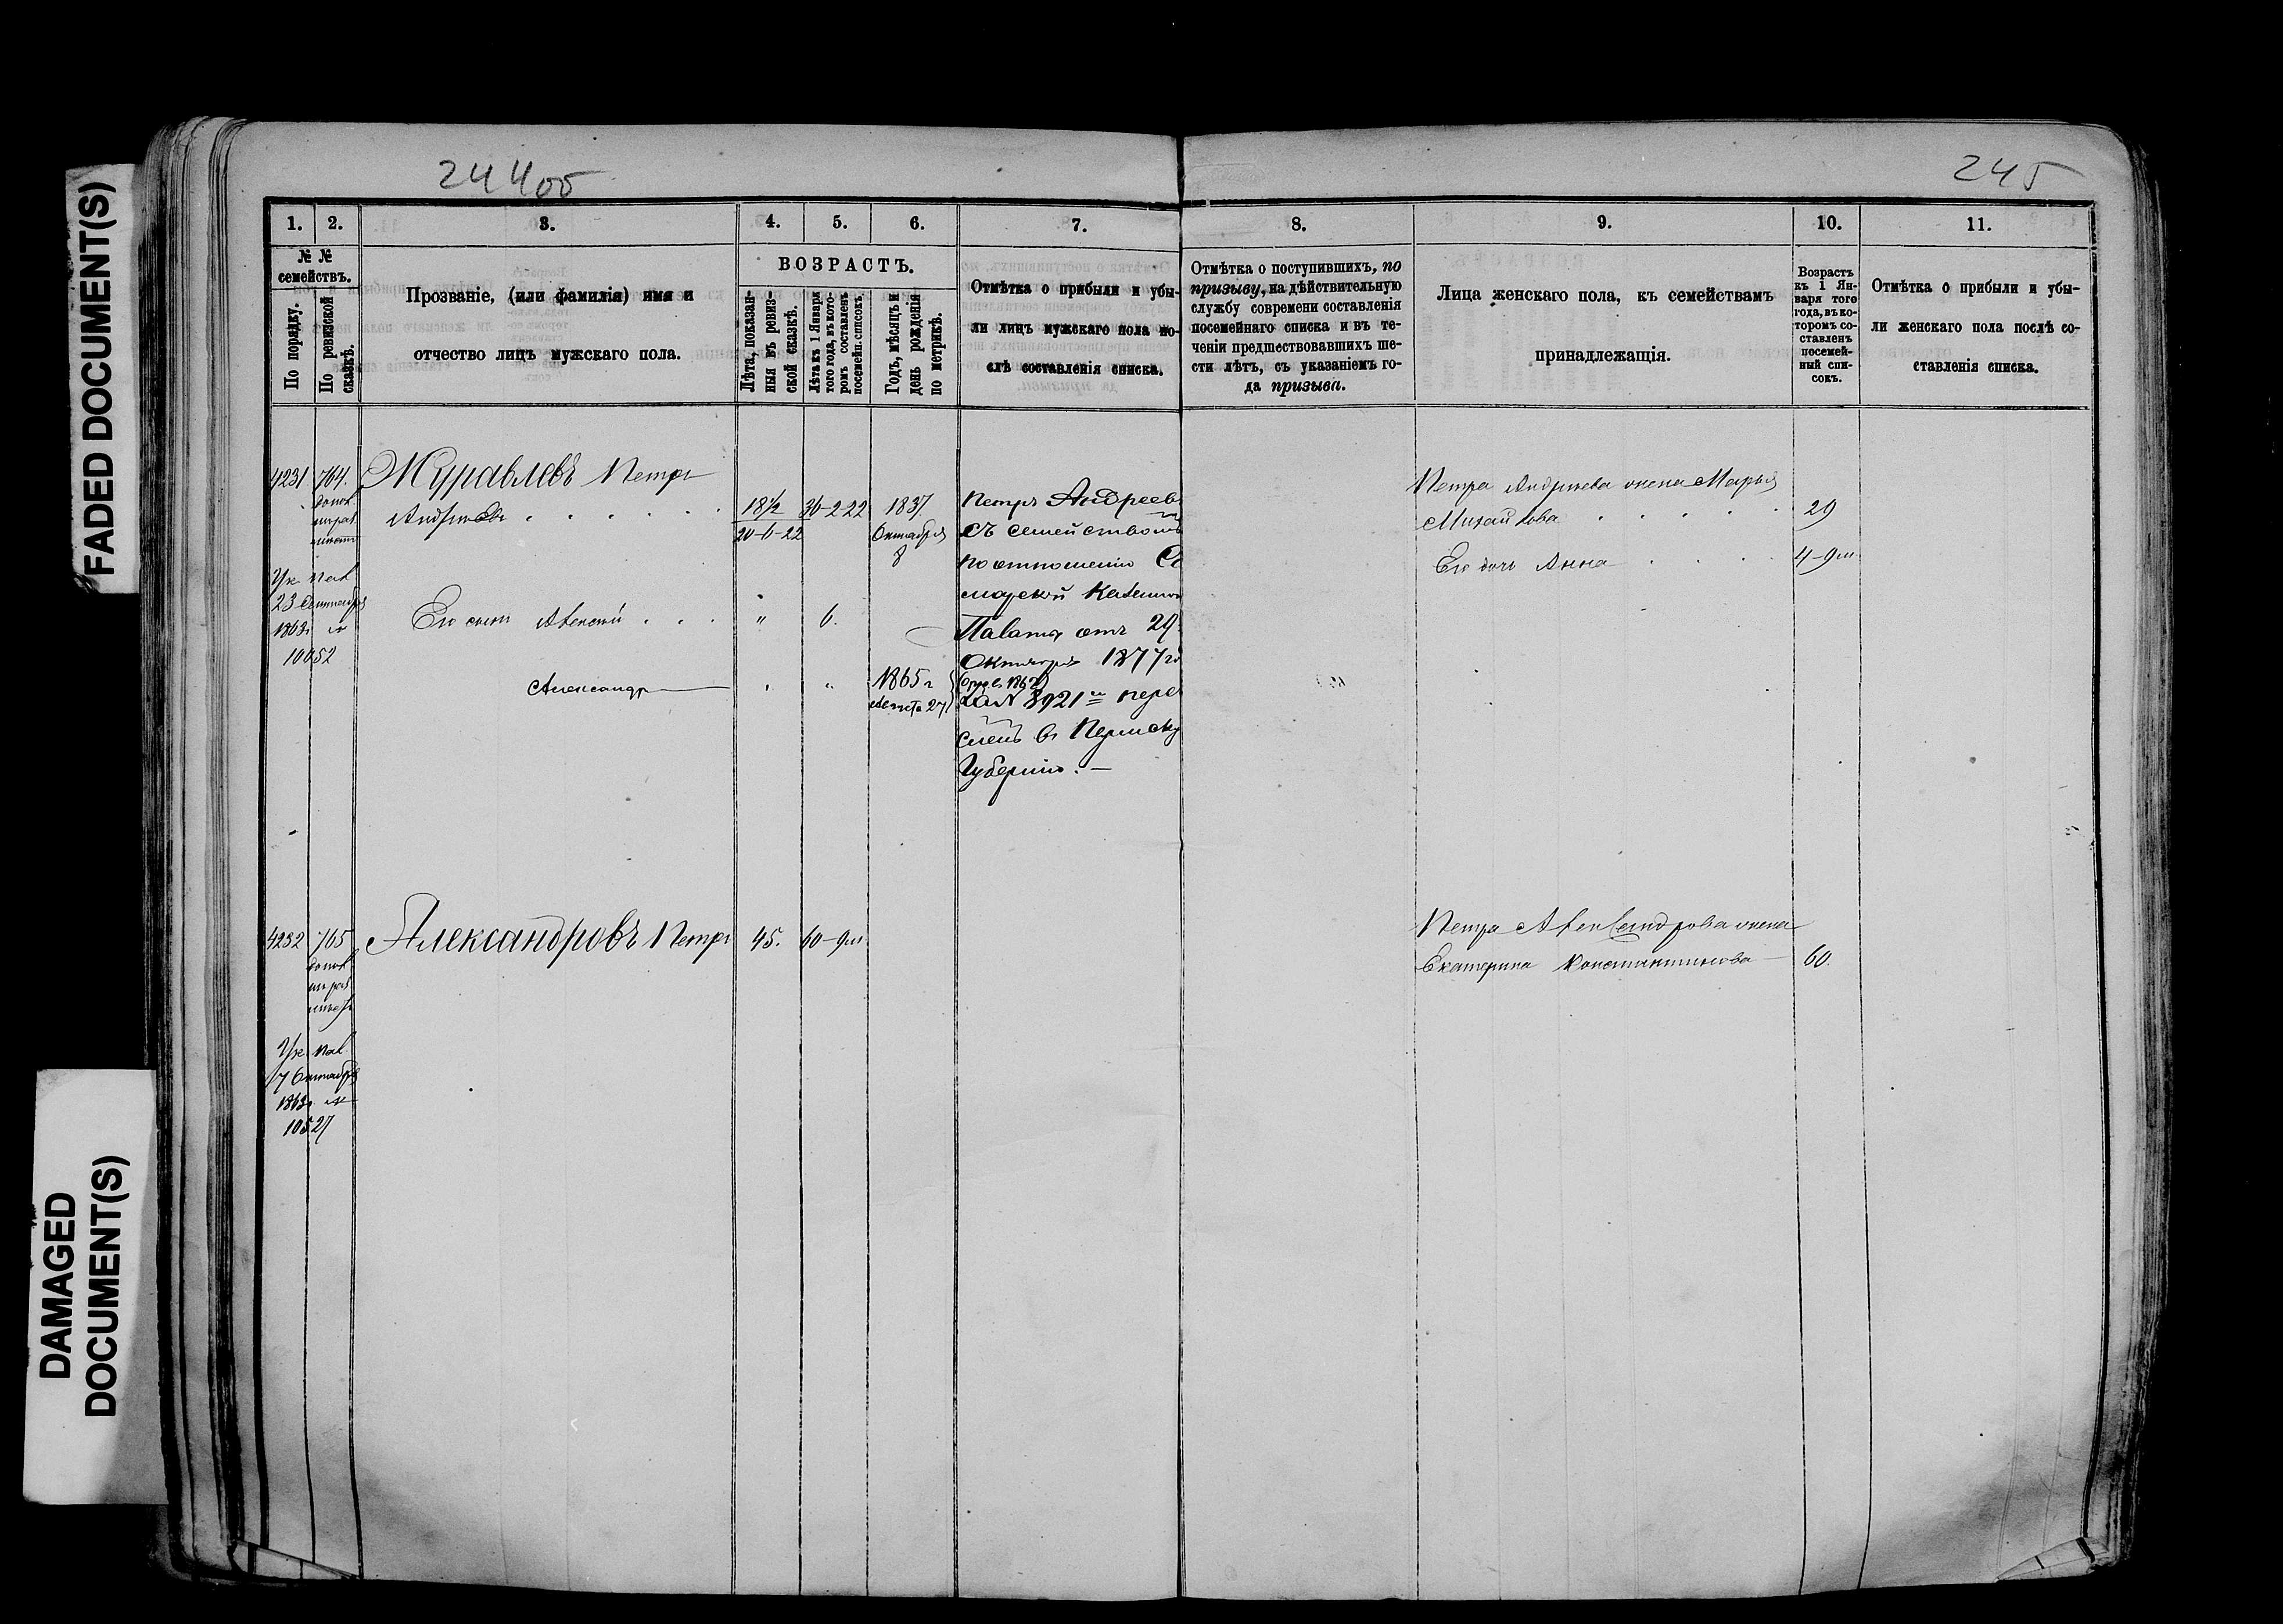 FADED DOCUMENT(S)
DAMAGED
DOCUMENT(S)
244об
245
1.
2.
3.
4.
5.
6.
7.
8.
9.
10.
11.
№ №
семействъ.
По порядку.
По ревизской
сказкѣ.
Прозваніе, (или фамилія) имя и
отчество лицъ мужскаго пола.
ВОЗРАСТЪ.
Лѣта, показан-
ныя въ ревиз-
ской сказкѣ.
Лѣта къ 1 Января
того года, въ кото-
ромъ составленъ
посемейн. списокъ.
Годъ, мѣсяцъ и
день рожденія
по метрикѣ.
Отмѣтка о прибыли и убы-
ли лицъ мужскаго пола по-
слѣ составленія списка.
Отмѣтка о поступившихъ, по
призыву, на дѣйствительную
службу современи составленія
посемейнаго списка и въ те-
ченіи предшествовавшихъ ше-
сти лѣтъ, съ указаніемъ го-
да призыва.
Лица женскаго пола, къ семействамъ
принадлежащія.
Возрастъ
къ 1 Ян-
варя того
года, въ ко-
торомъ со-
ставленъ
посемей-
ный спи-
сокъ.
Отмѣтка о прибыли и убы-
ли женскаго пола послѣ со-
ставленія списка.
4231 764.
Журавлевъ Петръ
Андреевъ
18½
20-6-22
36-2-22
1837.
Октября
8
Ук. Пал
23 Сентября
1863г №
10052
Его сынъ Алексѣй
" 6.
Александръ
1865г
27
Петръ Андреевъ
съ семействомъ
по отношенію Са
марской Казенной
Палаты отъ 29
Октября 1877го
за № 3921 пере
 въ Пермску
Губернію. —
Петра Андреева жена Марья
Михайлова
29
Его дочь Анна
4-9м
4232 765
Александровъ Петръ
45.
60-9м
Ук. Пал
7 Октября
1863г №
10527
Петра Александрова жена
Екатерина Константинова
60.